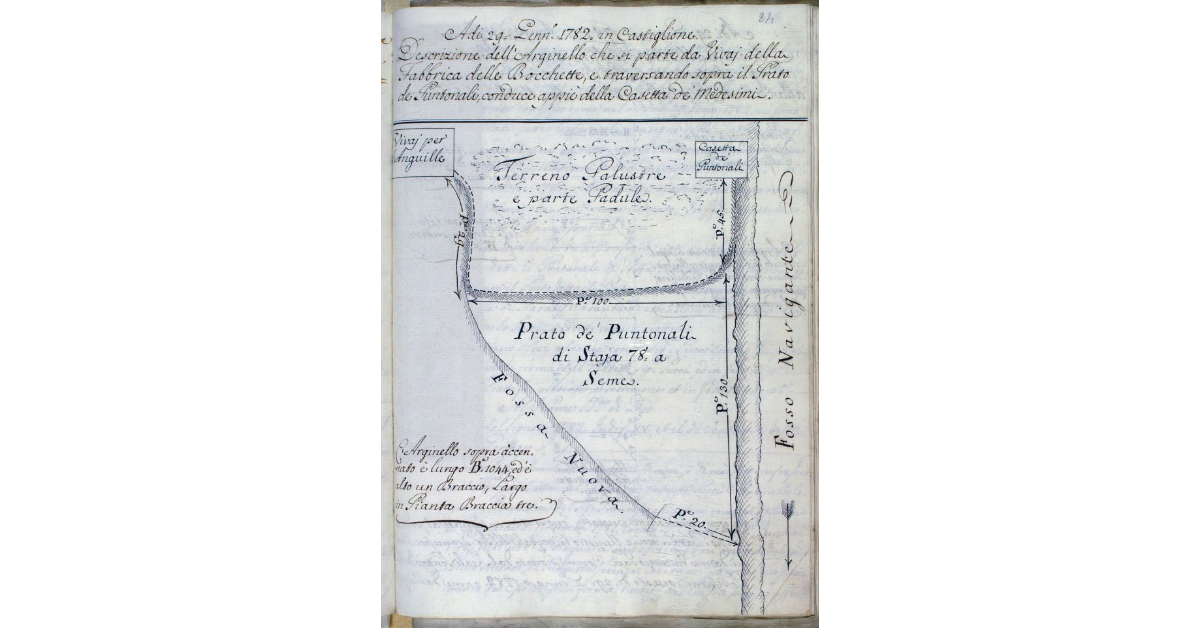 24
Adi 29. Genn.º 1782. in Castiglione.
Descrizione dell'Arginello che si parte da Vivaj della
Fabbrica delle Bocchette, e traversando sopra il Prato
de Puntonali, conduce appiè della Casetta de Medesimi.
Vivaj per
Anguille
Casetta
de
Puntonali
Terreno Palustre
e parte Padule.
P.º 45.
P.º 100
Prato de' Puntonali
di Staja 78. a
Seme.
Fossa Nuova.
P.º 130.
Fosso Navigante
L'Arginello sopra accen.
nato è lungo B.ª 1044, ed è
alto un Braccio, Largo
in Pianta Braccia tre.
P.º 20.